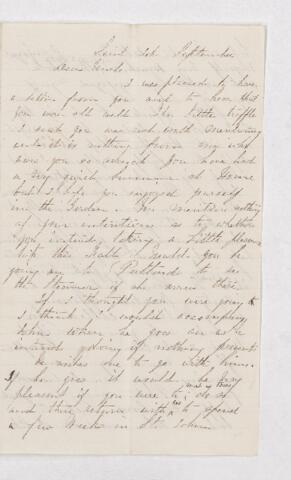 Saint John September
Dear Uncle
I was pleased to have
a letter from you and to hear that
you were all well. The little trifle
I sent you was not worth mentioning
it is nothing from my way
have you so much You have had
a very quiet summer at Douro
but I hope you enjoyed yourself
in the Garden. You mention nothing
of your intentions as to whether
you intend taking a little pleasure
trip this Fall. Would you be
going on to Portland to see
the Steamer if she arrives there
If I thought you were going
I think I would accompany
John when he goes on as he
intends going if nothing prevents
he wishes me to go with him.
If he goes it would be very
pleasant if you were to do so
and then return with us to spend
a few weeks in St. John